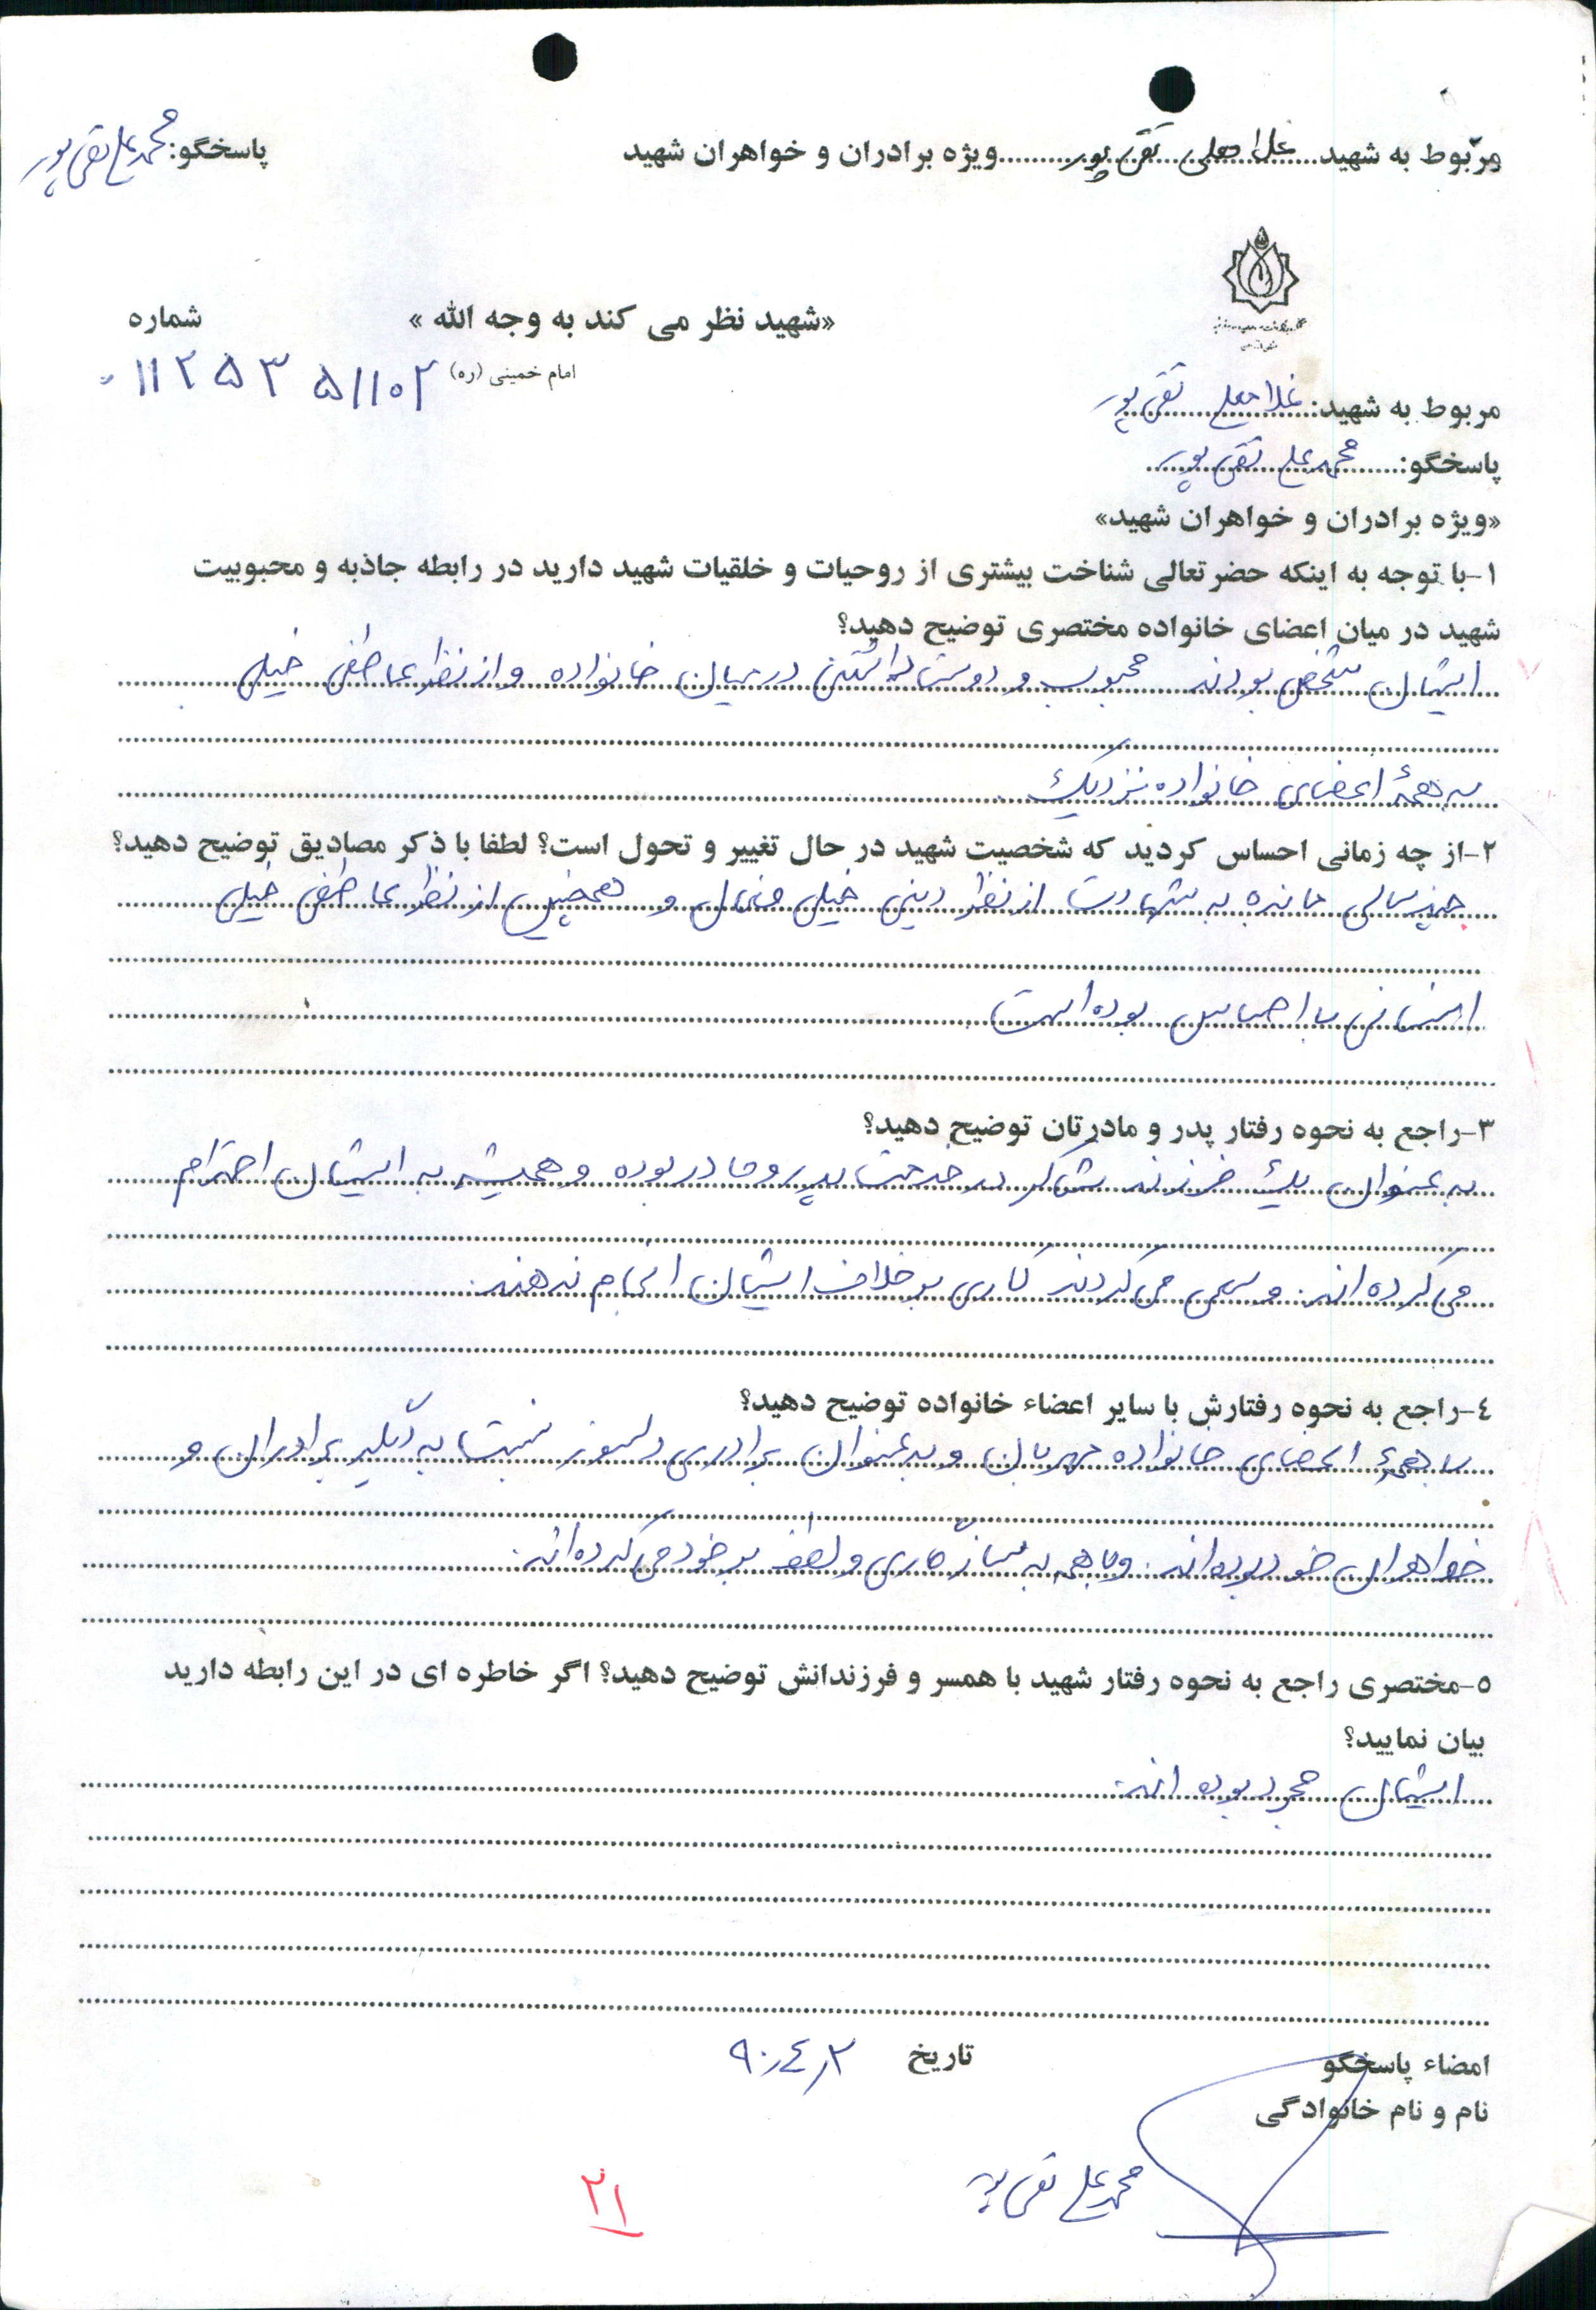 مربوط به شهید غلامعلی تقی پور ویژه برادران و خواهران شهید
پاسخگو: محمدعلی تقی پور
«شهید نظر می کند به وجه الله»
شماره
امام خمینی (ره)
۱۱۲۵۳ ۵۱۱۰۲
مربوط به شهید: غلامعلی تقی پور
پاسخگو: محمدعلی تقی پور
«ویژه برادران و خواهران شهید»
۱-با توجه به اینکه حضرتعالی شناخت بیشتری از روحیات و خلقیات شهید دارید در رابطه جاذبه و محبوبیت
شهید در میان اعضای خانواده مختصری توضیح دهید؟
ایشان شخص بودند محبوب و دوست داشتنی در میان خانواده و از نظر عاطفی خیلی
به همهٔ اعضای خانواده نزدیک
۲-از چه زمانی احساس کردید که شخصیت شهید در حال تغییر و تحول است؟ لطفا با ذکر مصادیق توضیح دهید؟
چند سالی مانده به شهادت از نظر دینی خیلی فعال و همچنین از نظر عاطفی خیلی
انسانی با احساس بوده است
۳-راجع به نحوه رفتار پدر و مادرتان توضیح دهید؟
به عنوان یک فرزند شاکر در خدمت پدر و مادر بوده و همیشه به ایشان احترام
می کرده اند. و سعی می کردند کاری بر خلاف ایشان انجام ندهند.
٤-راجع به نحوه رفتارش با سایر اعضاء خانواده توضیح دهید؟
با همهٔ اعضای خانواده مهربان و به عنوان برادری دلسوز نسبت به دیگر برادران و
خواهران خود بوده اند. و با همه به سازگاری و لطف برخورد می کرده اند.
٥-مختصری راجع به نحوه رفتار شهید با همسر و فرزندانش توضیح دهید؟ اگر خاطره ای در این رابطه دارید
بیان نمایید؟
ایشان مجرد بوده اند.
امضاء پاسخگو
تاریخ ۹۰٫٤٫۲
نام و نام خانوادگی
محمدعلی تقی پور
۲۱